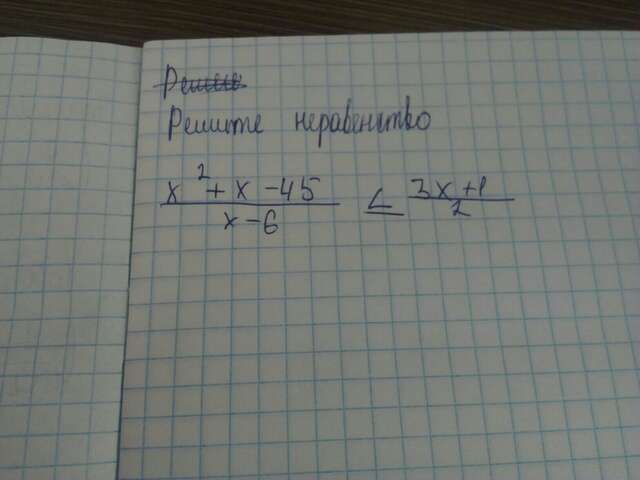 Решите
Решите неравенство
x² + x - 45 / x - 6 ≤ 3x + 1 / 2